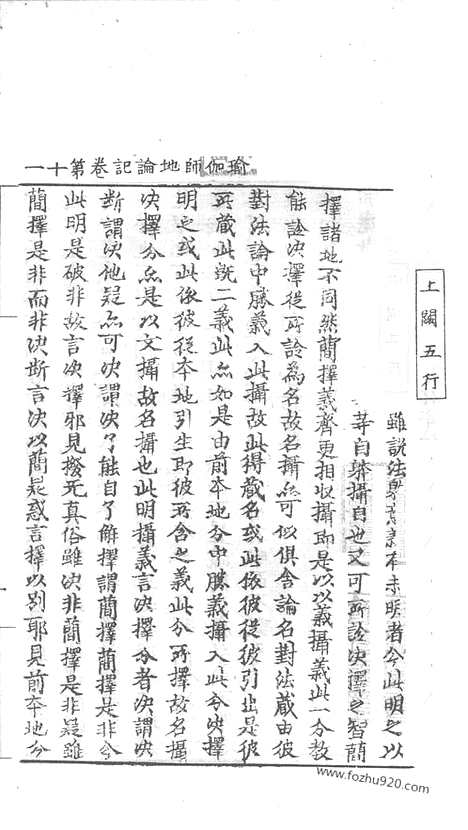 瑜伽師地論記卷第十一
上闕五行
雖說法
本未明者今此明之以
弉自躰攝自也又可所詮決擇之智簡
擇諸地不同然簡擇義齊更相收攝即是以義攝義此一分教
能詮決擇從所詮為名故名攝也可似俱舍論名對法藏由彼
對法論中勝義入此攝故此得藏名或此依彼從彼引生是彼
所藏此既二義此亦如是由前本地分中勝義攝入此分決擇
明之或此依彼從本地引生即彼所含之義此分所擇故名攝
決擇分亦是以文攝故名攝也此明攝義言決擇分者決謂決
斷謂決他疑亦可決謂決了能自了解擇謂簡擇簡擇是非今
此明是破非故言決擇邪見撥无真俗雖決非簡擇是非疑雖
簡擇是非而非決斷言決以簡疑惑言擇以別邪見前本地分
www.fozhu920.com